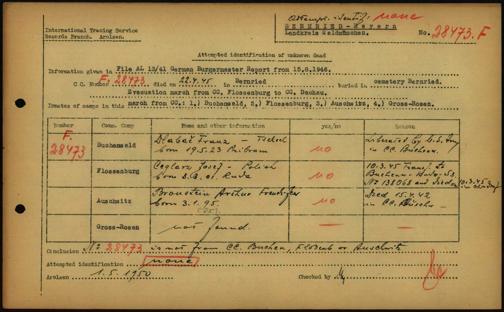 International Tracing Service
Records Branch. Arolsen.
Attempt. identif.: none
GERNRIED-Bayern
Landkreis Waldmünchen
No. 28473. F
Attempted identification of unknown dead
Information given in File AL 13/41 German Burgermaster Report from 15.8.1946.
C.C. Number F. 28473 died on 22.4.45 in Bernried buried in cemetery Bernried.
Evacuation march from CC. Flossenburg to CC. Dachau.
Inmates of camps in this march from CC.: 1.) Buchenwald, 2.) Flossenburg, 3.) Auschwitz, 4.) Gross-Rosen.
Number Conc. Camp Name and other information yes/no Reason
F. 28473
Buchenwald Franz - born 19.5.23 Pribram no liberated by in CC Buchen.
Flossenburg Josef - Polish born no 10.3.45 Transf. to Buchenw.
No 138068 and
Auschwitz Arthur born 3.1.95. no Died 15.4.42 in CC.
Gross-Rosen not found.
Conclusion No 28473 is not from CC. Buchen, or Auschwitz
Attempted identification none
Arolsen 1.5.1950 Checked by